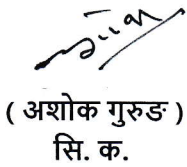 ( अशोक गुरुङ )
सि. क.